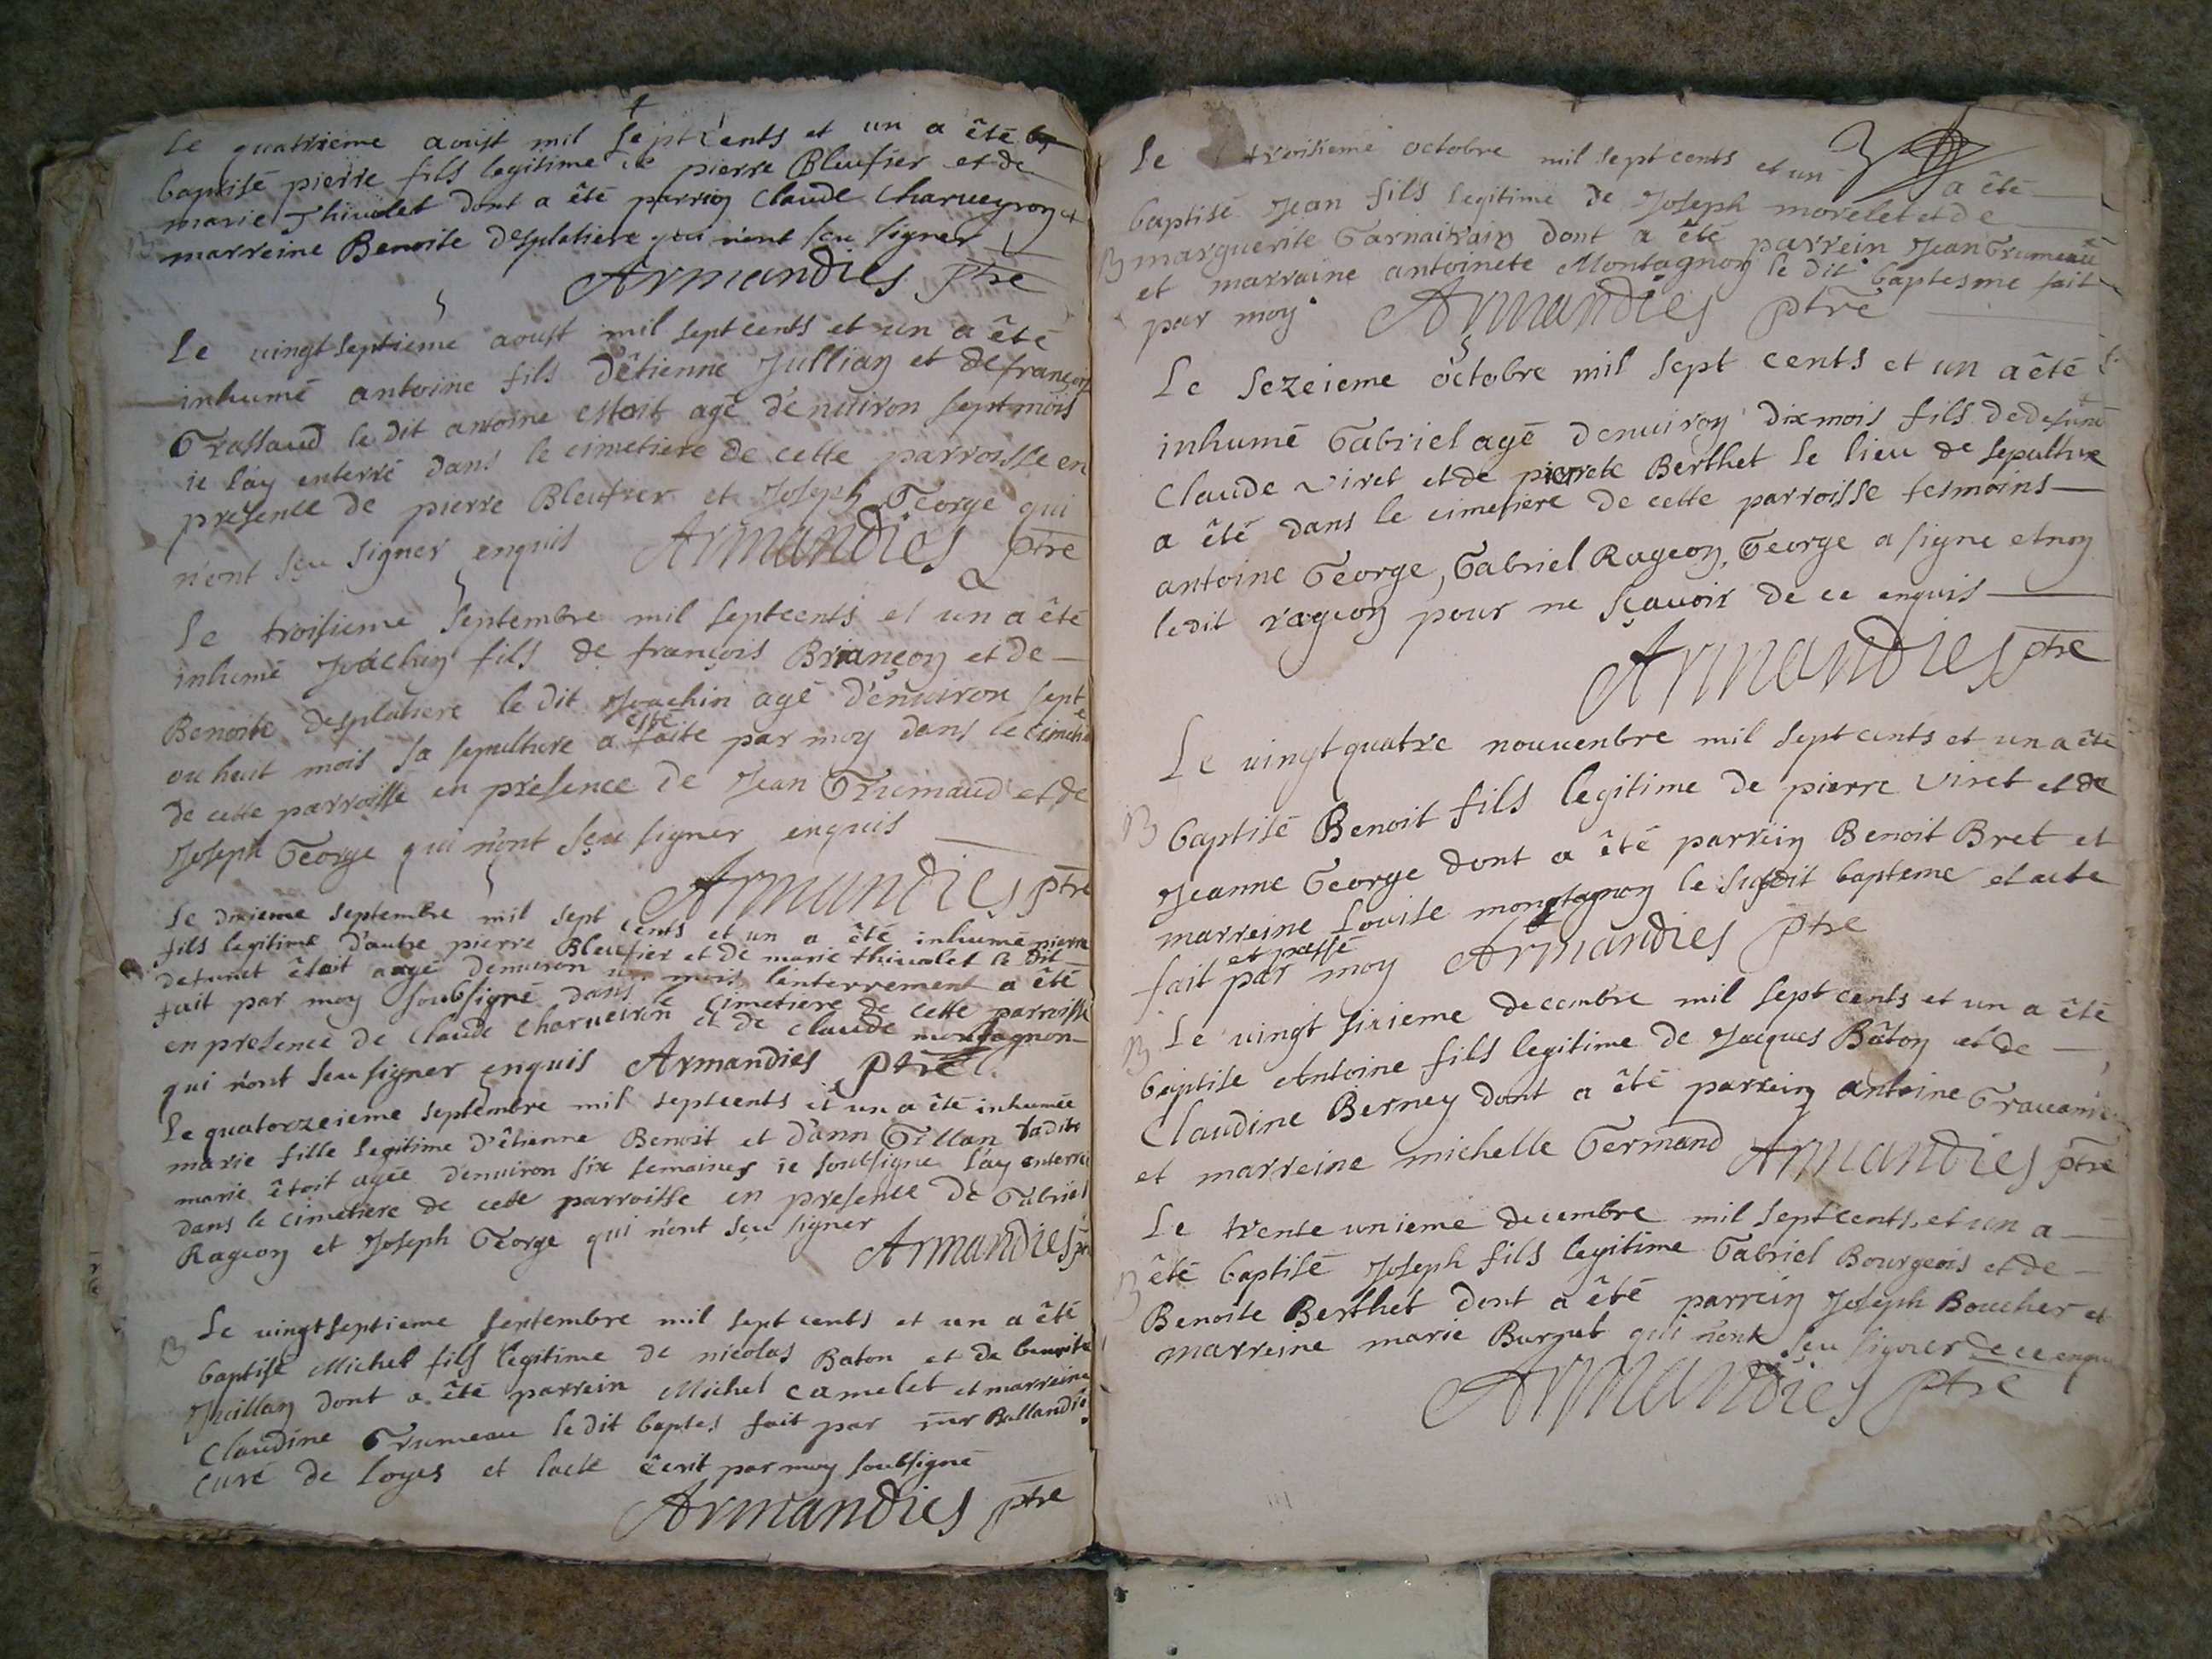 Le quatrieme aoust mil sept cents et un a êté
baptisé pierre fils legitime de pierre Bleufier et de
marie Thivolet dont a été parrion Claude Charveyron et
marreine Benoite desplatiere qui n'ont sçu signer
Armandies ptre
Le vingt septieme aoust mil sept cents et un a êté
inhumé antoine fils d'êtienne Jullian et de françoise
Grassaud le dit antoine estoit agé d'enuiron sept mois
ie l'ay enterré dans le cimetiere de cette parroisse en
presence de pierre Bleufier et Joseph George qui
n'ont sçu signer enquis Armandies ptre
Le troisieme septembre mil sept cents et un a êté
inhumé Joachin fils de françois Briançon et de
Benoite desplatiere le dit Joachin agé d'enuiron sept
ou huit mois sa sepulture a esté faite par moy dans le cimetie
de cette parroisse en presence de Jean Grumaud et de
Joseph George qui n'ont sçu signer enquis
Armandies ptre
Le dixieme septembre mil sept cents et un a êté inhumé pierre
fils legitime d'autre pierre Bleufier et de marie thivolet le dit
defunct êtoit aagé denuiron un mois l'enterrement a êté
fait par moy soubsigné dans le cimetiere de cette parroisse
en presence de Claude Charveiron et de Claude montagnon
qui n'ont sçu signer enquis Armandies ptre
Le quatorzeieme septembre mil sept cents et un a êté inhumée
marie fille legitime d'êtienne Benoit et d'ann Gillan ladite
marie êtoit agée denuiron six semaines ie soubsigné l'ay enterré
dans le cimetiere de cette parroisse en presence de Gabriel
Rageon et Joseph George qui n'ont sçu signer
Armandies ptre
B Le vingt septieme septembre mil sept cents et un a êté
baptisé Michel fils legitime de nicolas Baton et de benoite
Juillan dont a êté parrein Michel Camelet et marreine
Claudine Grumeau le dit baptes fait par mr Ballandi
curé de loyes et l'acte êcrit par moy soubsigné
Armandies ptre
Le troisieme octobre mil sept cents et un a êté
baptisé Jean fils legitime de Joseph morelet et de
B marguerite Garnairain dont a êté parrein Jean Grumeau
et marraine antoinete Montagnon le dit baptesme fait
par moy Armandies ptre
Le sezeieme octobre mil sept cents et un a êté
inhumé Gabriel agé denuiron dix mois fils de defunt
Claude viret et de pierrete Berthet le lieu de sepulture
a êté dans le cimetiere de cette parroisse tesmoins
antoine George, Gabriel Rageon, George a signe et non
ledit rageon pour ne sçavoir de ce enquis
Armandies ptre
Le vingt quatre nouuenbre mil sept cents et un a êté
B baptisé Benoit fils legitime de pierre viret et de
Jeanne George dont a êté parrein Benoit Bret et
marreine Louise montagnon le susdit bapteme et acte
fait et passé par moy Armandies ptre
B Le vingt sixieme decembre mil sept cents et un a êté
baptise Antoine fils legitime de Jacques Bâton et de
Claudine Berney dont a êté parrein antoine
et marreine michelle Germand Armandies ptre
Le trente unieme decembre mil sept cents et un a
B êté baptisé Joseph fils legitime Gabriel Bourgeois et de
Benoite Berthet dont a êté parrein Joseph Boucher et
marreine marie Burnet qui n'ont sçu signer de ce enquis
Armandies ptre